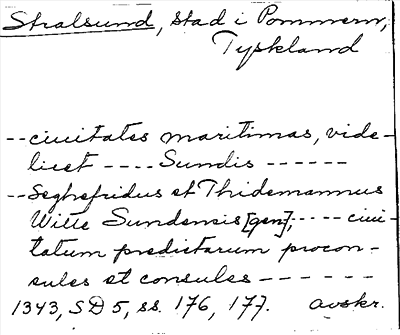 Stralsund, stad i Pommern,
Tyskland
-- ciuitates maritimas, vide-
licet ---- Sundis ------
-- Seghefridus et Thidemannus
Witte Sundensis [gen], ----- ciui-
tatum predictarum procon-
sules et consules ------
1343, SD 5, ss. 176, 177. avskr.